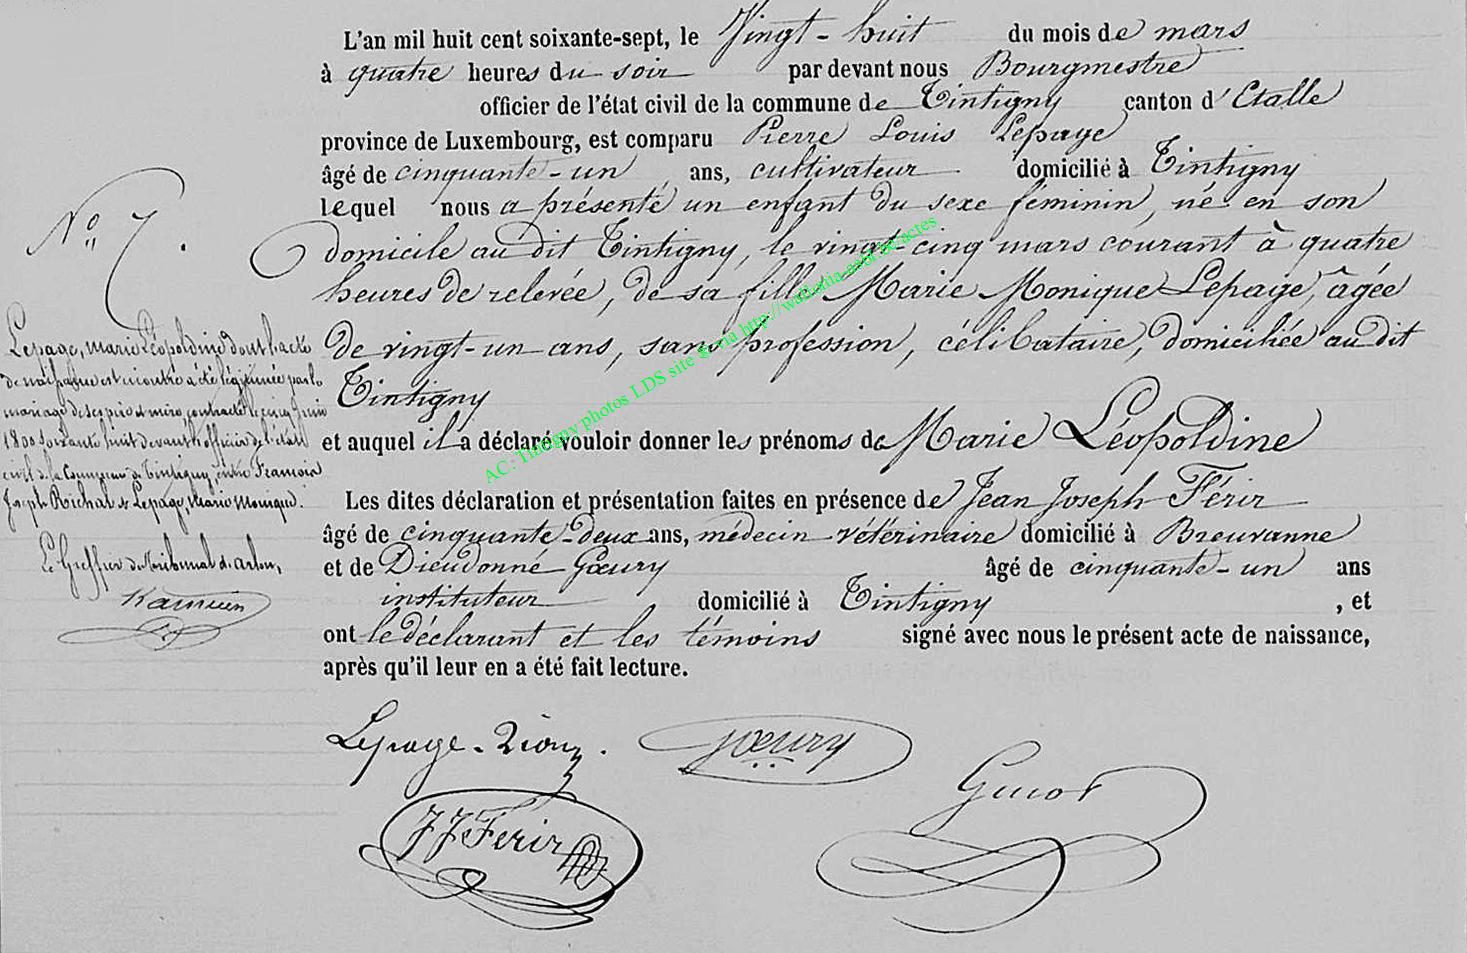 L'an mil huit cent soixante-sept, le Vingt-huit du mois de mars
à quatre heures du soir par devant nous Bourgmestre
officier de l'état civil de la commune de Tintigny canton d'Etalle
province de Luxembourg, est comparu Pierre Louis Lepage
âgé de cinquante-un ans, cultivateur domicilié à Tintigny
lequel nous a présenté un enfant du sexe féminin, né en son
domicile au dit Tintigny, le vingt-cinq mars courant à quatre
heures de relevée, de sa fille Marie Monique Lepage, âgée
de vingt-un ans, sans profession, célibataire, domiciliée au dit
Tintigny
et auquel il a déclaré vouloir donner les prénoms de Marie Léopoldine
Les dites déclaration et présentation faites en présence de Jean Joseph Férir
âgé de cinquante-deux ans, médecin vétérinaire domicilié à Breuvanne
et de Dieudonné Gœury âgé de cinquante-un ans
instituteur domicilié à Tintigny , et
ont le déclarant et les témoins signé avec nous le présent acte de naissance,
après qu'il leur en a été fait lecture.
N° 7.
Lepage, marie Léopoldine dont l'acte
de naissance est ci contre a été légitimée par le
mariage de ses père et mère, contracté le cinq juin
1800 soixante huit devant l'officier de l'état
civil de la Commune de Tintigny, entre François
Joseph Richard & Lepage, Marie Monique.
Le Greffier du Tribunal d'Arlon,
Lepage-
Gœury
JJ Ferir
AC: Tintigny photos LDS site & via http://wallonia-asbl.be/actes